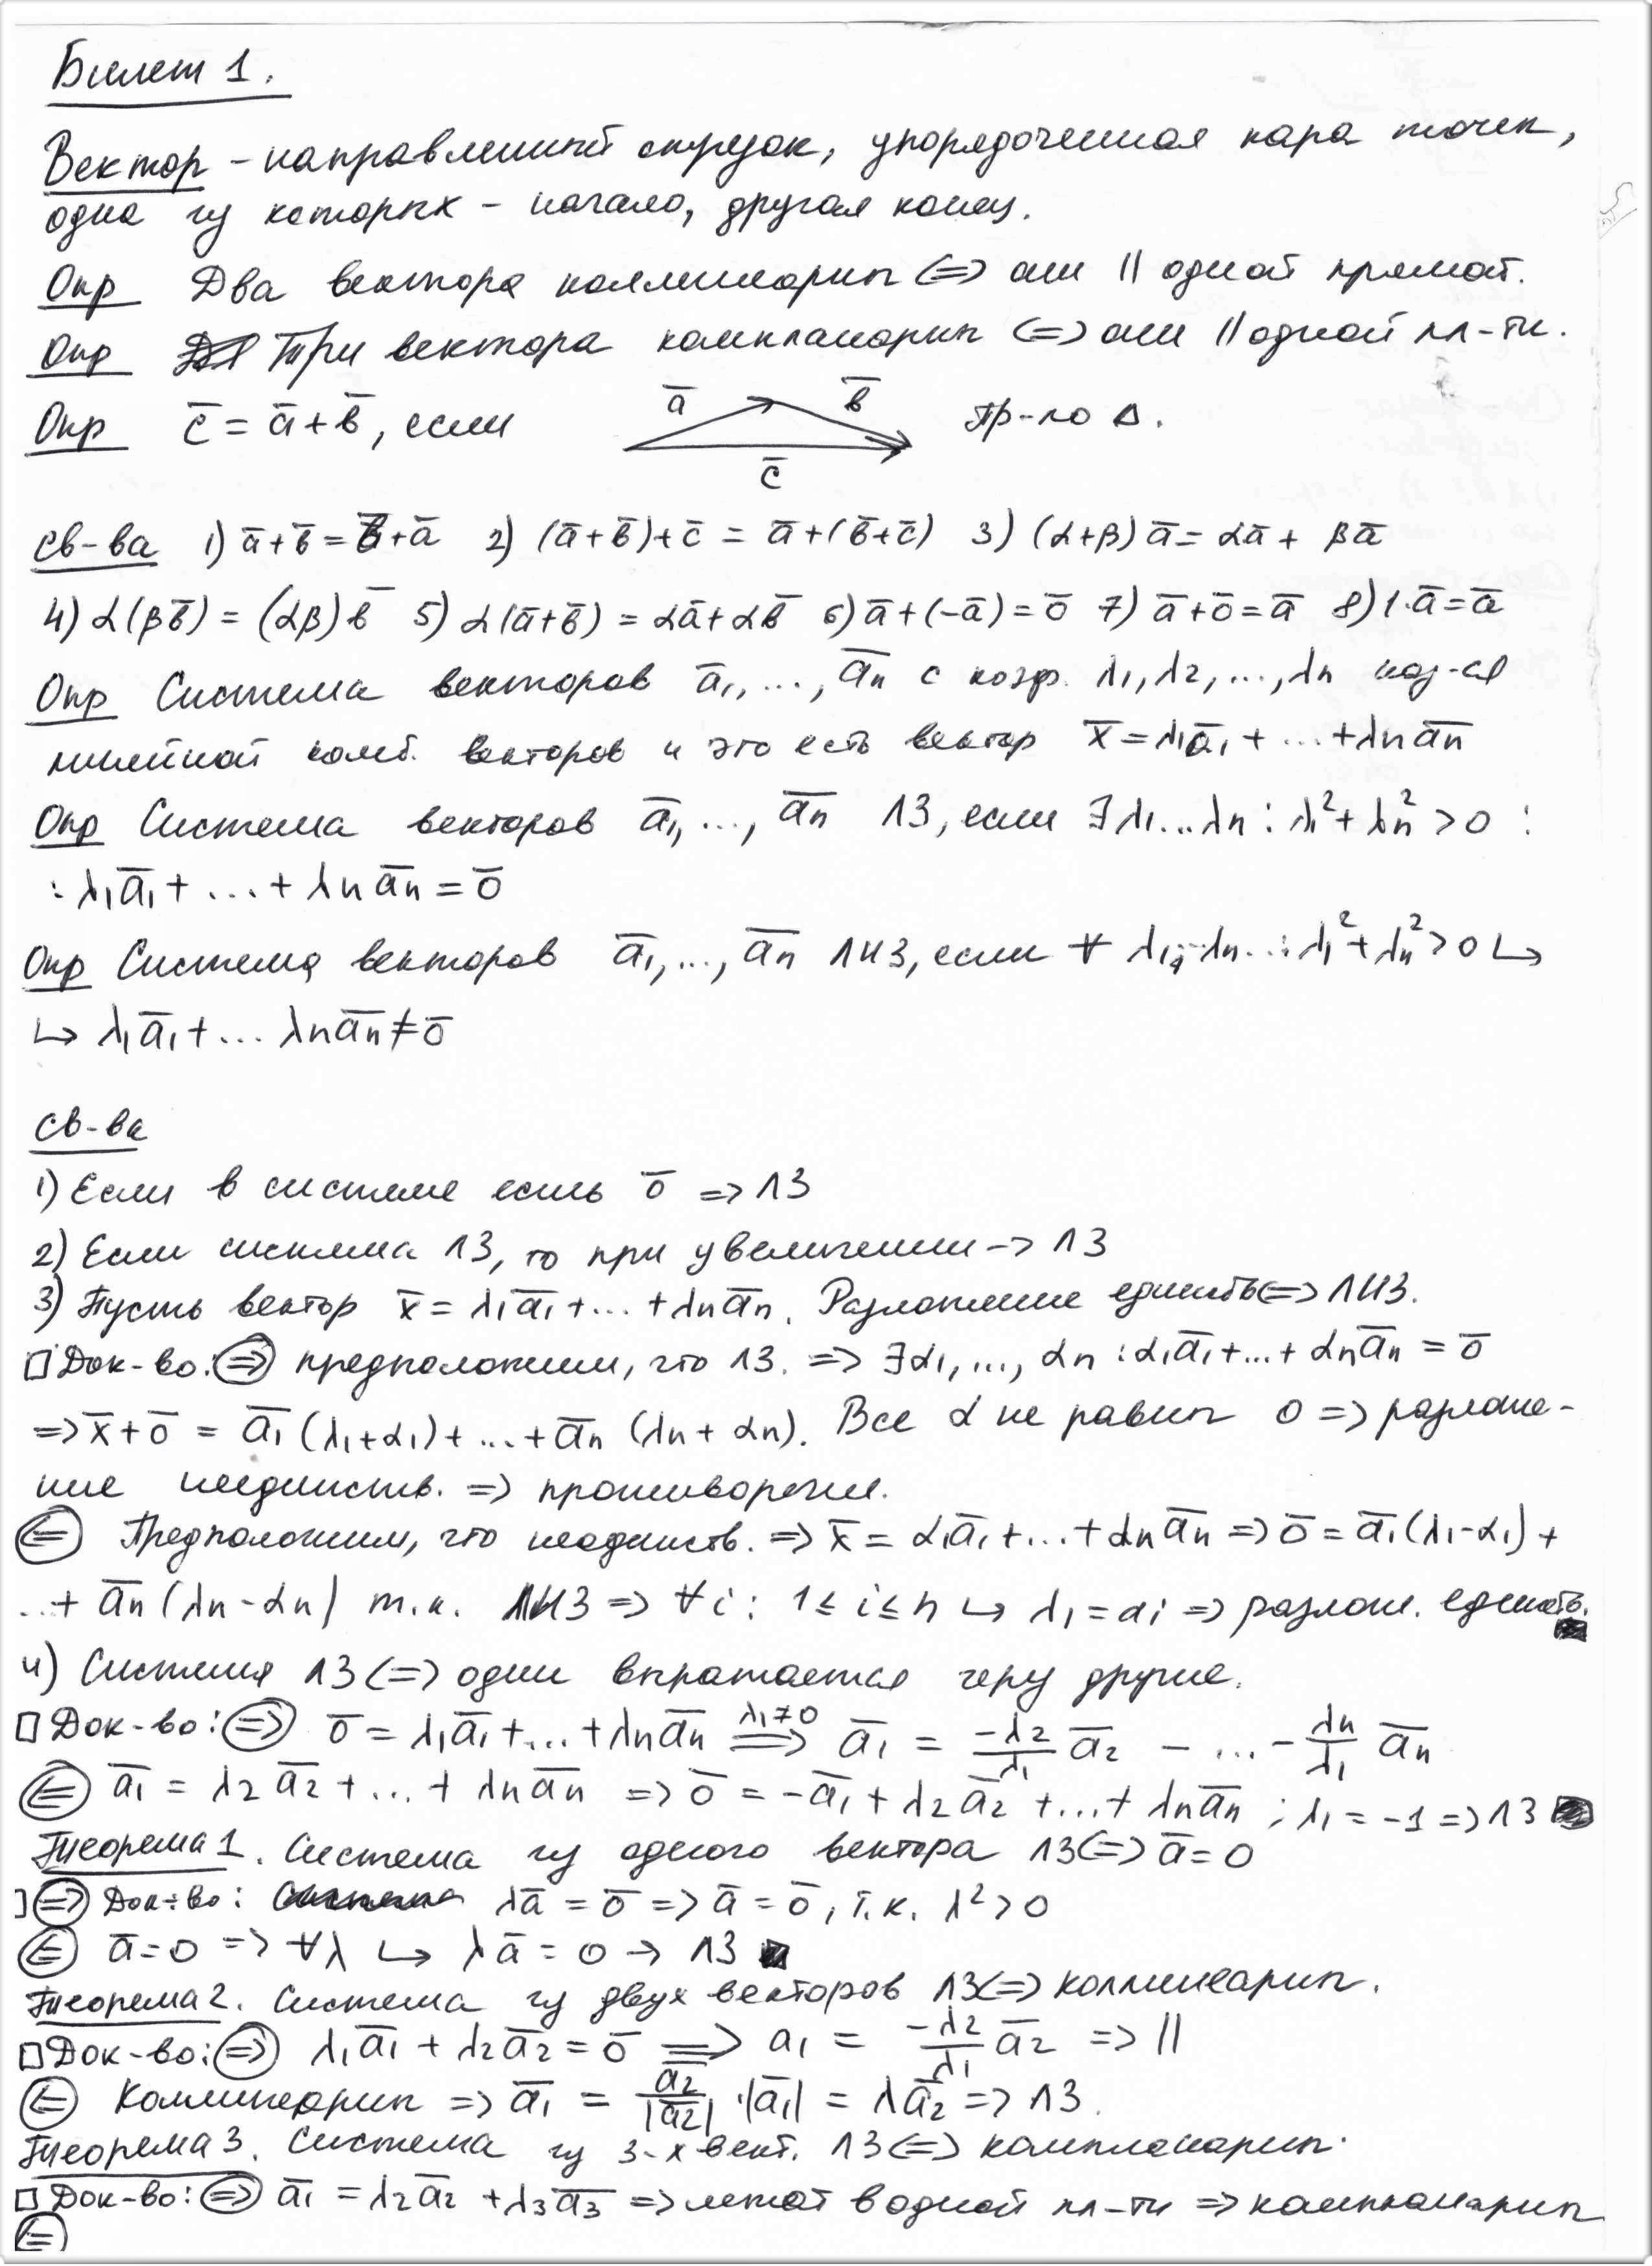 Билет 1.
Вектор – направленный отрезок, упорядоченная пара точек,
одна из которых – начало, другая конец.
Опр Два вектора коллинеарны <=> они || одной прямой.
Опр Три вектора компланарны <=> они || одной пл-ти.
Опр c̅ = a̅ + b̅, если a̅ b̅ c̅ Пр-ло Δ.
Св-ва 1) a̅+b̅ = b̅+a̅ 2) (a̅+b̅)+c̅ = a̅+(b̅+c̅) 3) (α+β)a̅ = αa̅ + βa̅
4) α(βb̅) = (αβ)b̅ 5) α(a̅+b̅) = αa̅+αb̅ 6) a̅+(-a̅) = 0̅ 7) a̅+0̅=a̅ 8) 1·a̅=a̅
Опр Система векторов a̅₁, ..., a̅ₙ с коэф. λ₁, λ₂, ..., λₙ наз-ся
линейной комб. векторов и это есть вектор x̅ = λ₁a̅₁ + ... + λₙa̅ₙ
Опр Система векторов a̅₁, ..., a̅ₙ ЛЗ, если ∃ λ₁...λₙ : λ₁² + λₙ² > 0 :
: λ₁a̅₁ + ... + λₙa̅ₙ = 0̅
Опр Система векторов a̅₁, ..., a̅ₙ ЛНЗ, если ∀ λ₁, ..λₙ...: λ₁² + λₙ² > 0 ↪
↪ λ₁a̅₁ + ... λₙa̅ₙ ≠ 0̅
Св-ва
1) Если в системе есть 0̅ => ЛЗ
2) Если система ЛЗ, то при увеличении -> ЛЗ
3) Пусть вектор x̅ = λ₁a̅₁ + ... + λₙa̅ₙ. Разложение единств <=> ЛНЗ.
□ Док-во: (=>) предположим, что ЛЗ. => ∃α₁, ..., αₙ : α₁a̅₁ + ... + αₙa̅ₙ = 0̅
=> x̅ + 0̅ = a̅₁(λ₁+α₁) + ... + a̅ₙ(λₙ+αₙ). Все α не равны 0 => разложе-
ние неединств. => противоречие.
(<=) Предположим, что неединств. => x̅ = α₁a̅₁ + ... + αₙa̅ₙ => 0̅ = a̅₁(λ₁-α₁) +
..+ a̅ₙ(λₙ-αₙ) т.к. ЛНЗ => ∀i : 1 ≤ i ≤ n ↪ λ₁ = αi => разлож. единств. ■
4) Система ЛЗ <=> один выражается через другие.
□ Док-во: (=>) 0̅ = λ₁a̅₁ + ... + λₙa̅ₙ =(λ₁≠0)=> a̅₁ = -λ₂/λ₁ a̅₂ - ... - λₙ/λ₁ a̅ₙ
(<=) a̅₁ = λ₂a̅₂ + ... + λₙa̅ₙ => 0̅ = -a̅₁ + λ₂a̅₂ + ... + λₙa̅ₙ ; λ₁ = -1 => ЛЗ ■
Теорема 1. Система из одного вектора ЛЗ <=> a̅ = 0
] (=>) Док-во: λa̅ = 0̅ => a̅ = 0̅, т.к. λ² > 0
(<=) a̅ = 0 => ∀λ ↪ λa̅ = 0 -> ЛЗ ■
Теорема 2. Система из двух векторов ЛЗ <=> коллинеарны.
□ Док-во: (=>) λ₁a̅₁ + λ₂a̅₂ = 0̅ => a₁ = -λ₂/λ₁ a̅₂ => ||
(<=) Коллинеарны => a̅₁ = a̅₂/|a̅₂| · |a̅₁| = λa̅₂ => ЛЗ.
Теорема 3. Система из 3-х вект. ЛЗ <=> компланарны.
□ Док-во: (=>) a̅₁ = λ₂a̅₂ + λ₃a̅₃ => лежат в одной пл-ти => компланарны
(<=)